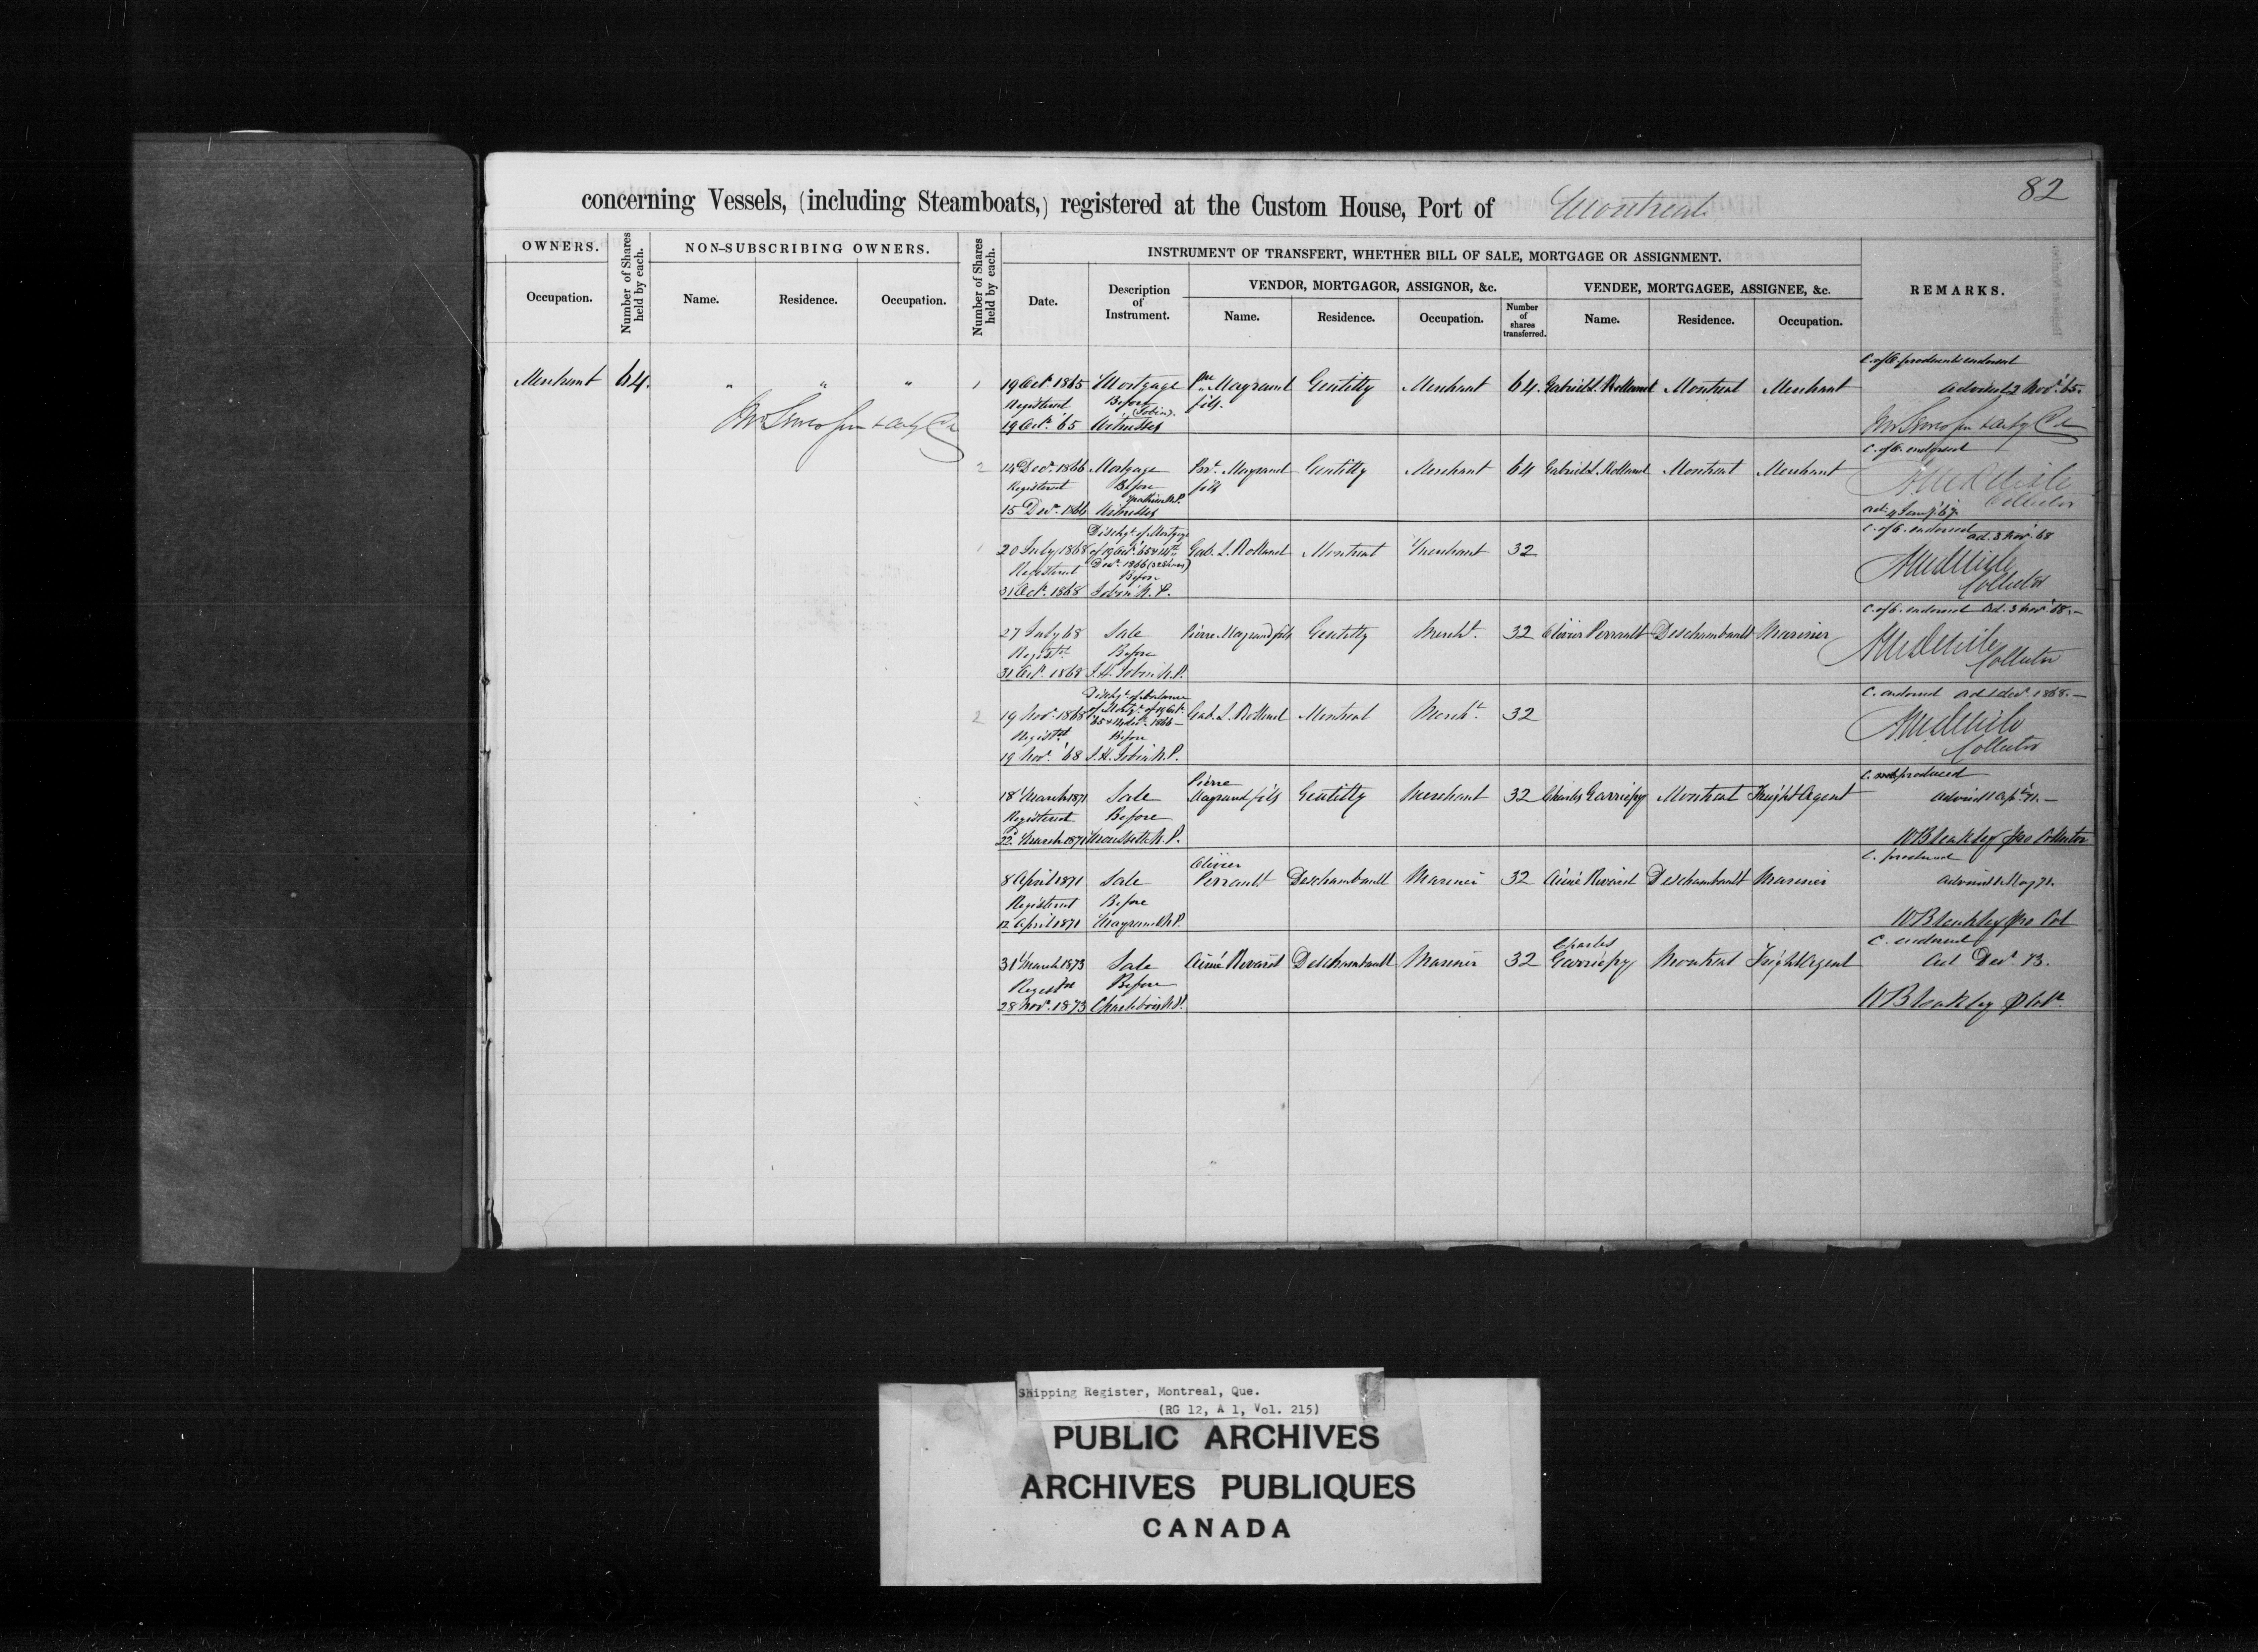 82
concerning Vessels, (including Steamboats,) registered at the Custom House, Port of Montreal
OWNERS.
Number of Shares held by each.
NON-SUBSCRIBING OWNERS.
Number of Shares held by each.
INSTRUMENT OF TRANSFERT, WHETHER BILL OF SALE, MORTGAGE OR ASSIGNMENT.
REMARKS.
Occupation.
Name.
Residence.
Occupation.
Date.
Description of Instrument.
VENDOR, MORTGAGOR, ASSIGNOR, &c.
VENDEE, MORTGAGEE, ASSIGNEE, &c.
Name.
Residence.
Occupation.
Number of shares transferred.
Name.
Residence.
Occupation.
Merchant 64. " " "
1 19 Octr. 1865 Mortgage Pre Maygrand Gentilly Merchant 64. Gabriel L. Rolland Montreal Merchant
Registered Before (Tobin). fils.
19 Octr. '65 Witnesses
C. of O. produced & endorsed
advised 2 Novr. 65.
2 14 Decr. 1866 Mortgage Pre. Maygrand Gentilly Merchant 64 Gabriel L. Rolland Montreal Merchant
Registered Before fils
15 Decr. 1866 Witnesses
C. of O. endorsed
Collector
1 20 July 1868 Gab. L. Rolland Montreal Merchant 32
Dischge. of Mortgage
of 19 Octr. '65 & 14th
Decr. 1866 (32 Shares)
Registered Before
31 Octr. 1868 Tobin N.P.
C. of O. endorsed ad. 3 Novr. 68
Collector
27 July 68 Sale Pierre Maygrand fils Gentilly Mercht. 32 Olivier Perrault Deschambault Mariner
Registd. Before
31 Octr. 1868 J.H. Jobin N.P.
C. of O. endorsed Ad. 3 Novr. 68.—
Collector
2 19 Novr. 1868 Gab. L. Rolland Montreal Mercht. 32
Dischge. of balance
of Mortge. of 19 Octr.
'65 & 14 Decr. 1866—
Registd. Before
19 Novr. '68 J.H. Jobin N.P.
C. endorsed ad 1 Decr. 1868.—
Collector
18 March 1871 Sale Pierre Maygrand fils Gentilly Merchant 32 Charles Garriépy Montreal Freight Agent
Registered Before
22d. March 1871 N.P.
C. not produced
advised 1 Apl. 71.—
W Bleakley pro Collector
8 April 1871 Sale Olivier Perrault Deschambault Mariner 32 Aimé Rivard Deschambault Mariner
Registered Before
12 April 1871 Maygrand N.P.
C. produced
advised 1 May 71.
W Bleakley pro Col
31 March 1873 Sale Aimé Rivard Deschambault Mariner 32 Charles Garriépy Montreal Freight Agent
Registd. Before
28 Novr. 1873 Charlebois N.P.
C. endorsed
ad Decr. 73.
W Bleakley
Shipping Register, Montreal, Que.
(RG 12, A 1, Vol. 215)
PUBLIC ARCHIVES
ARCHIVES PUBLIQUES
CANADA